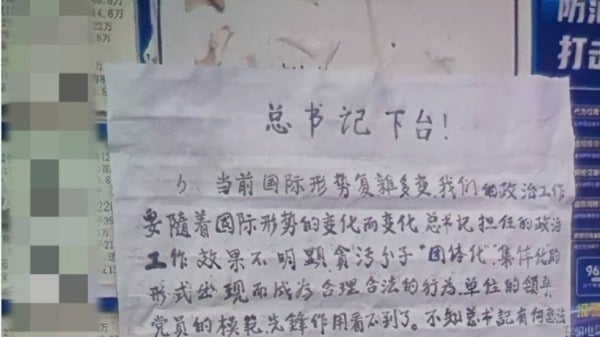 总书记下台！
1、当前国际形势复雜多变，我们的政治工作
要隨着国际形势的变化而变化，总书记担任的政治
工作效果不明顯，貪污分子“团体化”、集体化的
形式出现而成为合理合法的行为，单位的领导
党员的模範先鋒作用看不到了。不知总书记有何
14.6万
22万
防
打击
96